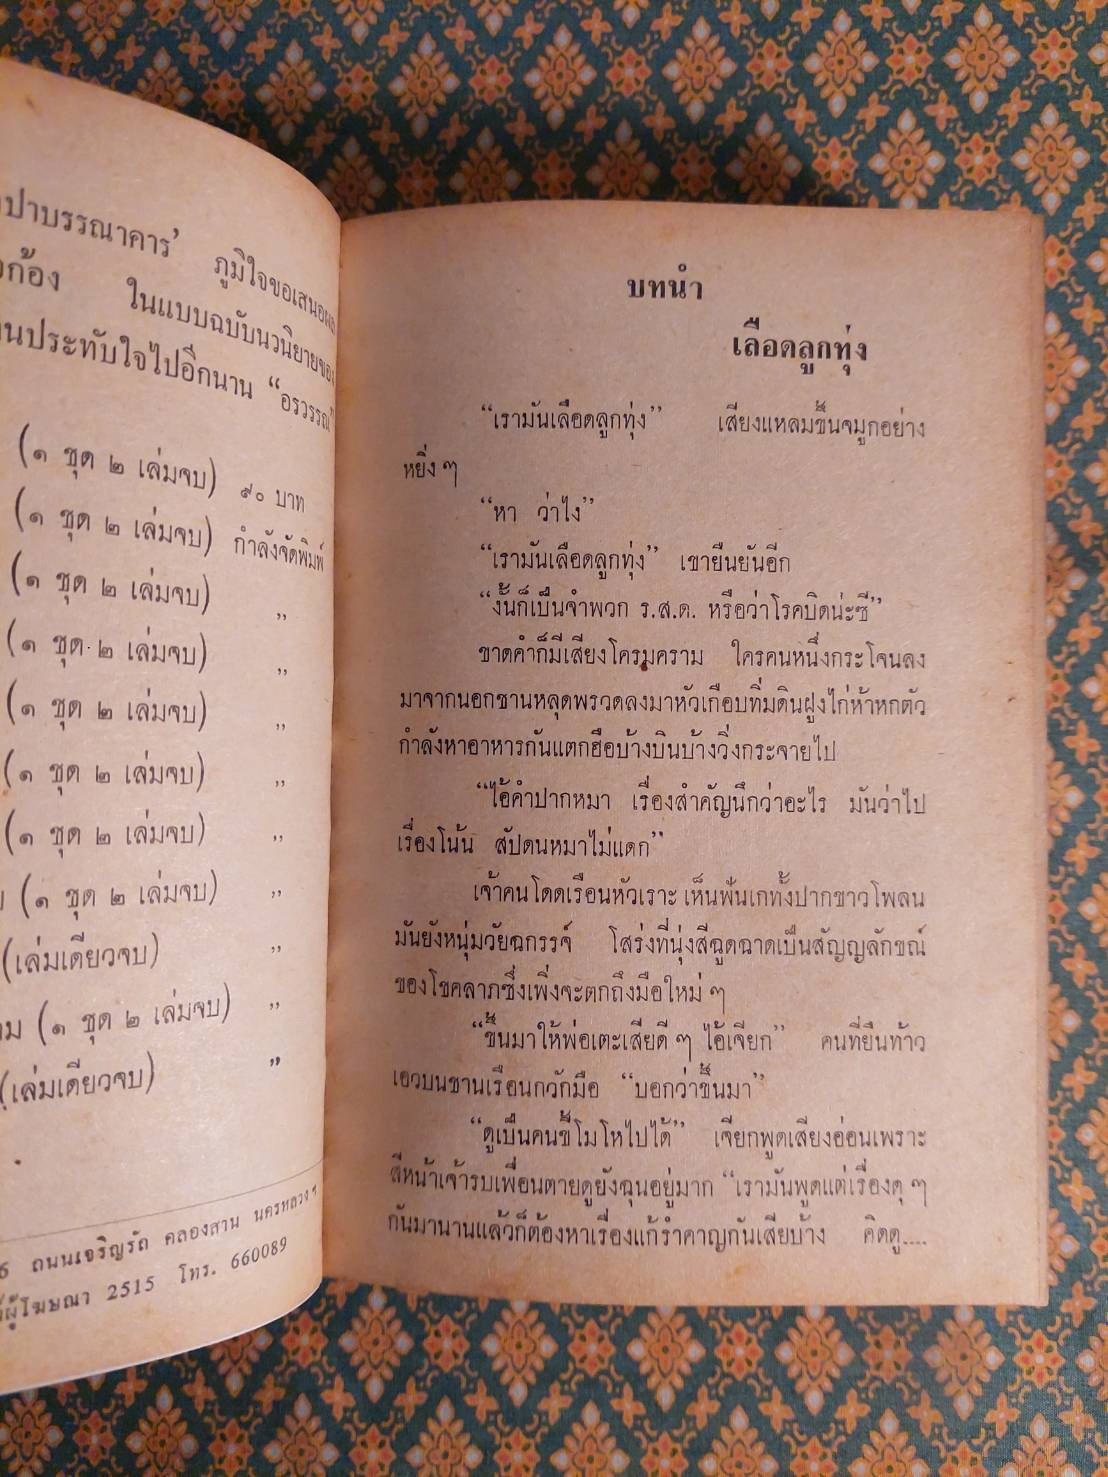 ปาบรรณาคาร’ ภูมิใจขอเสนอ
ก้อง ในแบบฉบับนวนิยายของ
ประทับใจไปอีกนาน “อรวรรณ”
(๑ ชุด ๒ เล่มจบ) ๙๐ บาท
(๑ ชุด ๒ เล่มจบ) กำลังจัดพิมพ์
(๑ ชุด ๒ เล่มจบ) ”
(๑ ชุด ๒ เล่มจบ) ”
(๑ ชุด ๒ เล่มจบ) ”
(๑ ชุด ๒ เล่มจบ) ”
(๑ ชุด ๒ เล่มจบ) ”
(๑ ชุด ๒ เล่มจบ) ”
(เล่มเดียวจบ) ”
(๑ ชุด ๒ เล่มจบ) ”
(เล่มเดียวจบ) ”
6 ถนนเจริญรัถ คลองสาน นครหลวงฯ
ผู้โฆษณา 2515 โทร. 660089
บทนำ
เลือดลูกทุ่ง
“เรามันเลือดลูกทุ่ง” เสียงแหลมขึ้นจมูกอย่าง
หยิ่ง ๆ
“หา ว่าไง”
“เรามันเลือดลูกทุ่ง” เขายืนยันอีก
“งั้นก็เป็นจำพวก ร.ส.ด. หรือว่าโรคบิดน่ะซี”
ขาดคำก็มีเสียงโครมคราม ใครคนหนึ่งกระโจนลง
มาจากนอกชานหลุดพรวดลงมาหัวเกือบทิ่มดินฝูงไก่ห้าหกตัว
กำลังหาอาหารกันแตกฮือบ้างบินบ้างวิ่งกระจายไป
“ไอ้คำปากหมา เรื่องสำคัญนึกว่าอะไร มันว่าไป
เรื่องโน้น สัปดนหมาไม่แดก”
เจ้าคนโดดเรือนหัวเราะ เห็นฟันเกทั้งปากขาวโพลน
มันยังหนุ่มวัยฉกรรจ์ โสร่งที่นุ่งสีฉูดฉาดเป็นสัญญลักขณ์
ของโชคลาภซึ่งเพิ่งจะตกถึงมือใหม่ ๆ
“ขึ้นมาให้พ่อเตะเสียดี ๆ ไอ้เจียก” คนที่ยืนท้าว
เอวบนชานเรือนกวักมือ “บอกว่าขึ้นมา”
“ดูเป็นคนขี้โมโหไปได้” เจียกพูดเสียงอ่อนเพราะ
สีหน้าเจ้ารบเพื่อนตายดูยังฉุนอยู่มาก “เรามันพูดแต่เรื่องดุ ๆ
กันมานานแล้วก็ต้องหาเรื่องแก้รำคาญกันเสียบ้าง คิดดู....